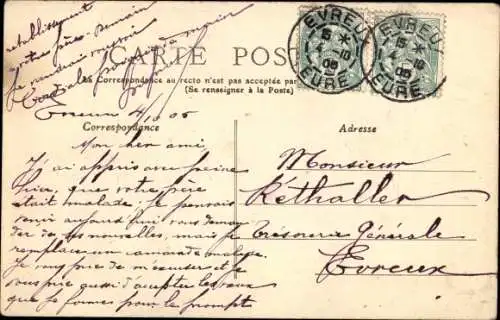 établissement
votre père. Demain
je viendrai me voir
Cordiale poignée de main
CARTE POSTALE
La Correspondance au recto n'est pas acceptée par
(Se renseigner à la Poste)
EVREUX
15 *
4 - 10
05
EURE
EVREUX
15 *
4 - 10
05
EURE
Evreux 4/10 05
Correspondance
Adresse
Mon cher ami,
J'ai appris avec peine
hier, que votre père
était malade. Je pensais
venir aujourd'hui vous deman
der de ses nouvelles, mais je
remplace un camarade malade.
Je vous prie de m'excuser et je
vous prie aussi d'accepter les vœux
que je forme pour le prompt
Monsieur
Réthaller
Trésorerie Générale
Evreux